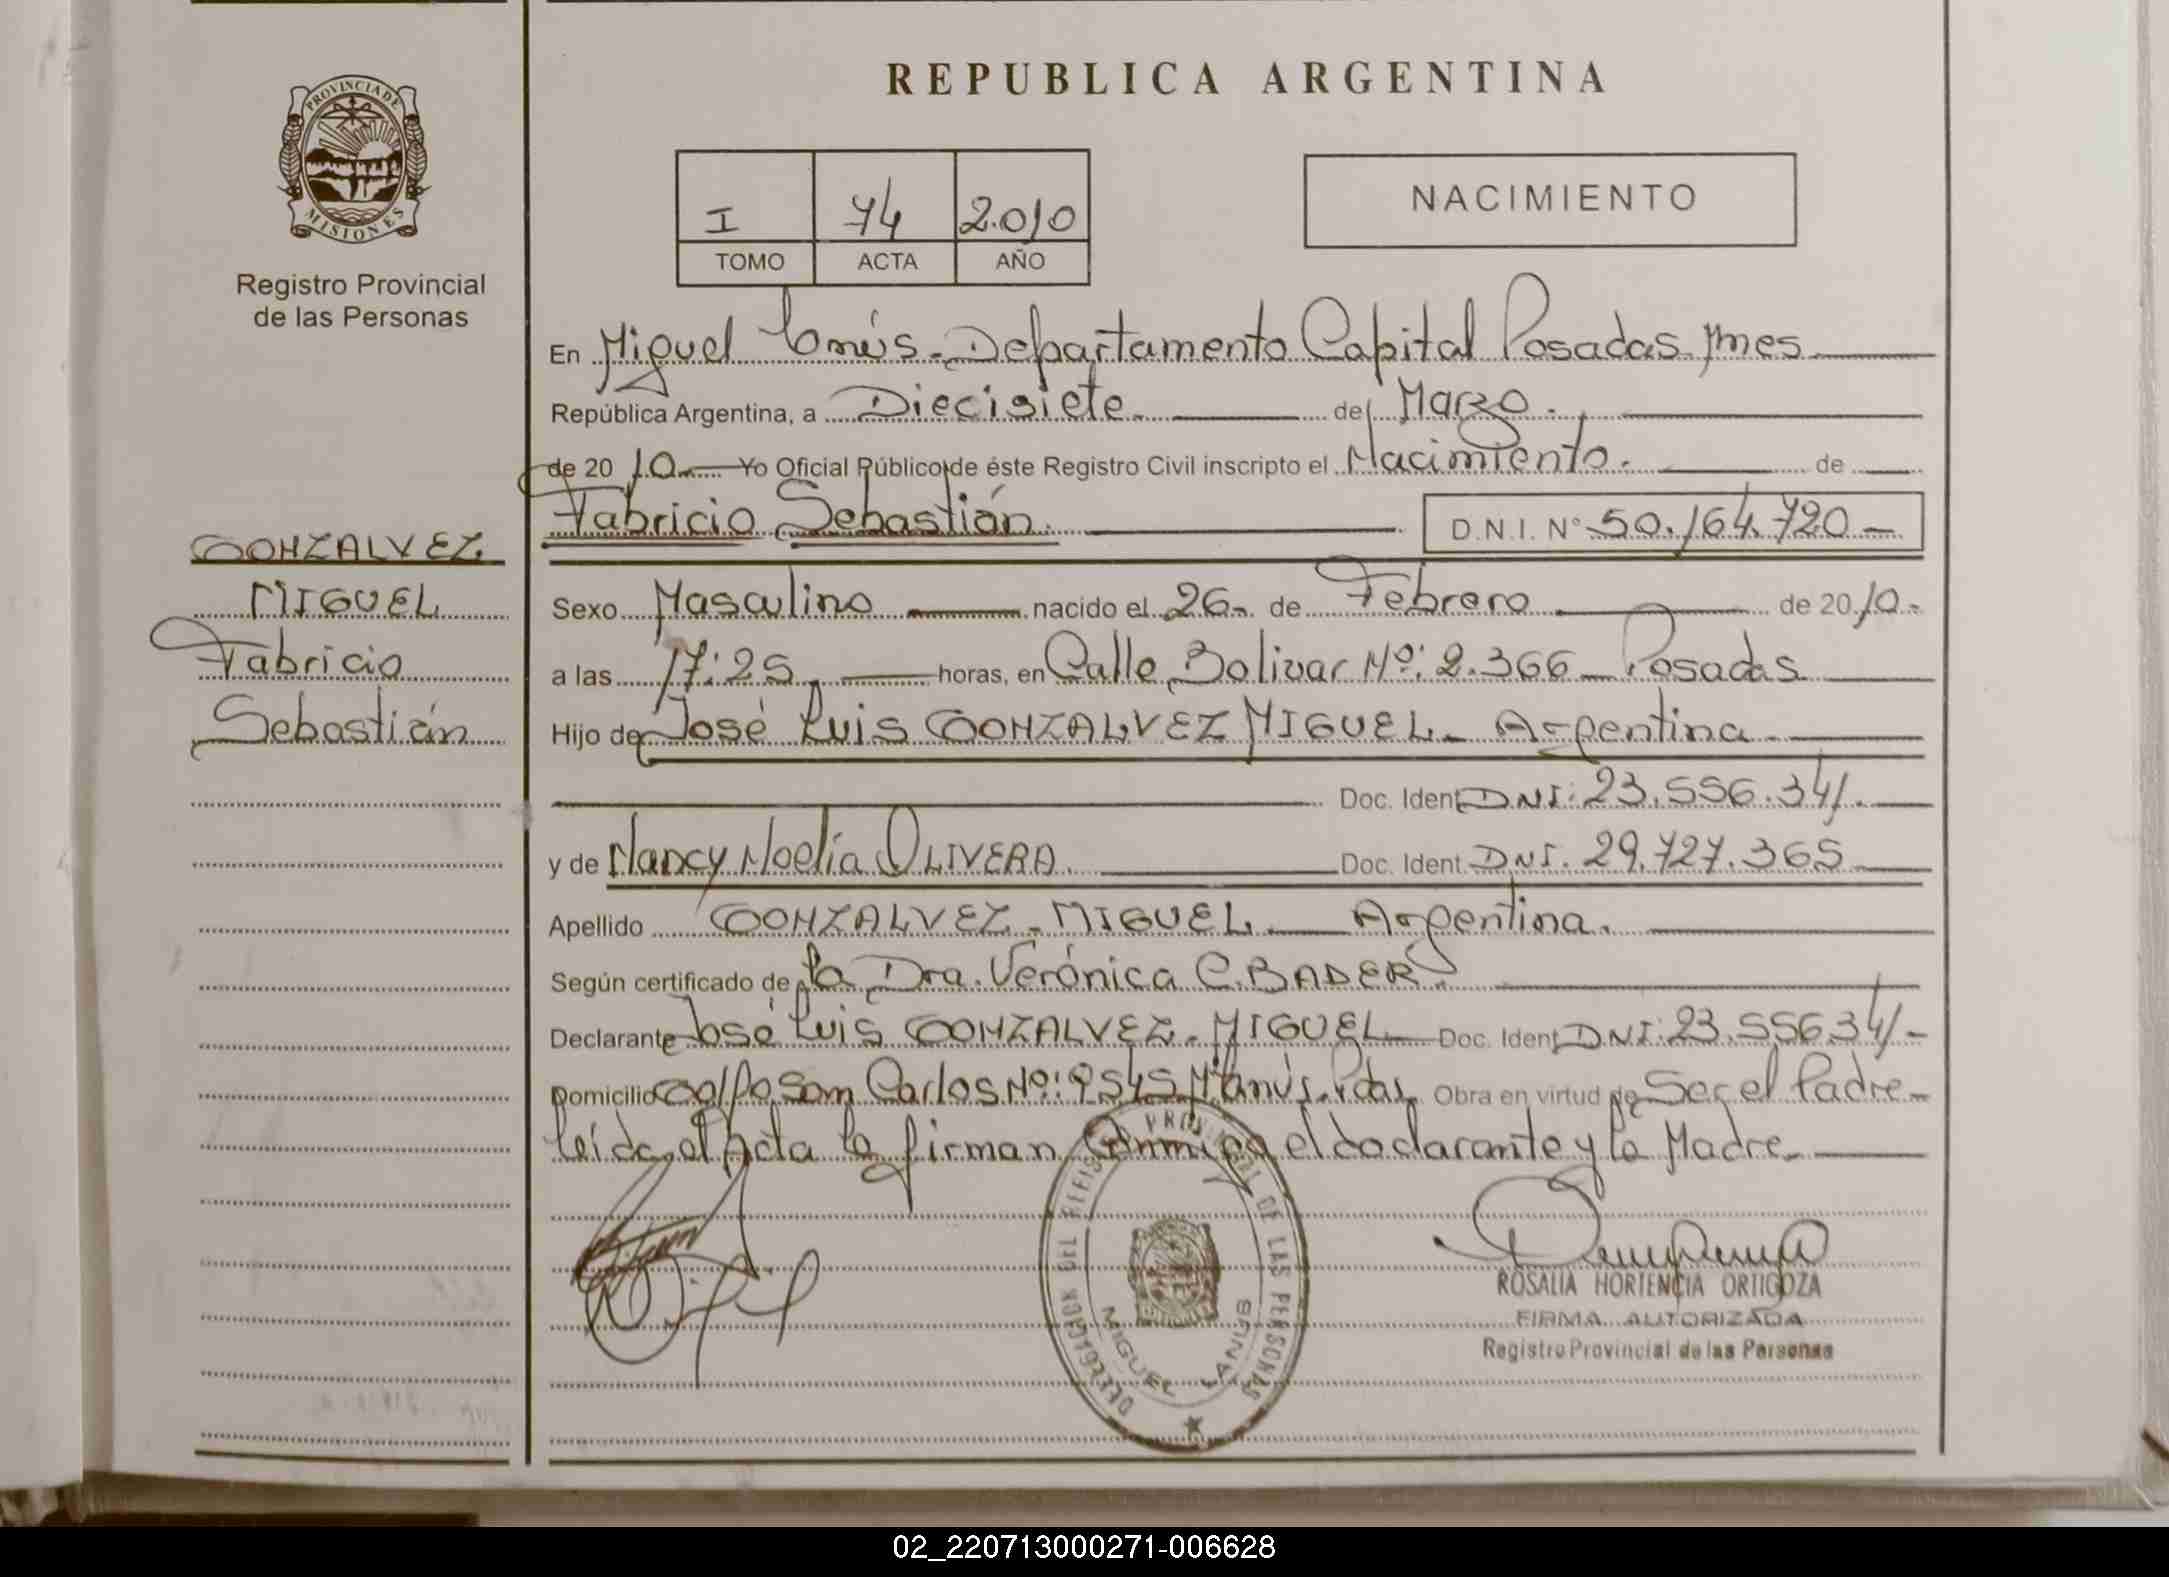 REPUBLICA ARGENTINA
PROVINCIA DE
MISIONES
Registro Provincial
de las Personas
I 74 2.010
TOMO ACTA AÑO
NACIMIENTO
En Miguel Lanús - Departamento Capital Posadas Mnes
República Argentina, a Diecisiete de Marzo.
de 2010 Yo Oficial Público de éste Registro Civil inscripto el Nacimiento. de
Fabricio Sebastián. D.N.I. Nº 50.164.720
GONZALVEZ
MIGUEL
Fabricio
Sebastián
Sexo Masculino nacido el 26 de Febrero de 2010
a las 17:25 horas, en Calle Bolivar Nº: 2.366 Posadas
Hijo de José Luis GONZALVEZ MIGUEL - Argentina
Doc. Ident DNI: 23.556.341.
y de Nancy Noelia OLIVERA. Doc. Ident. DNI. 29.727.365
Apellido GONZALVEZ - MIGUEL Argentina.
Según certificado de la Dra. Verónica C. BADER.
Declarante José Luis GONZALVEZ - MIGUEL Doc. Ident DNI: 23.556341
Domicilio San Carlos Nº: Obra en virtud de Ser el Padre
leída el Acta la firman Conmigo el declarante y la Madre
DELEGACION DEL REGISTRO PROVINCIAL DE LAS PERSONAS
MIGUEL LANUS
ROSALIA HORTENCIA ORTIGOZA
FIRMA AUTORIZADA
Registro Provincial de las Personas
02_220713000271-006628